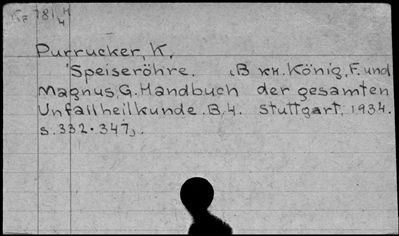 Purrucker, K.
Speiseröhre. (В кн. König, F. und
Magnus, G. Handbuch der gesamten
Unfallheilkunde. B. 4. Stuttgart, 1934.
s. 332-347).